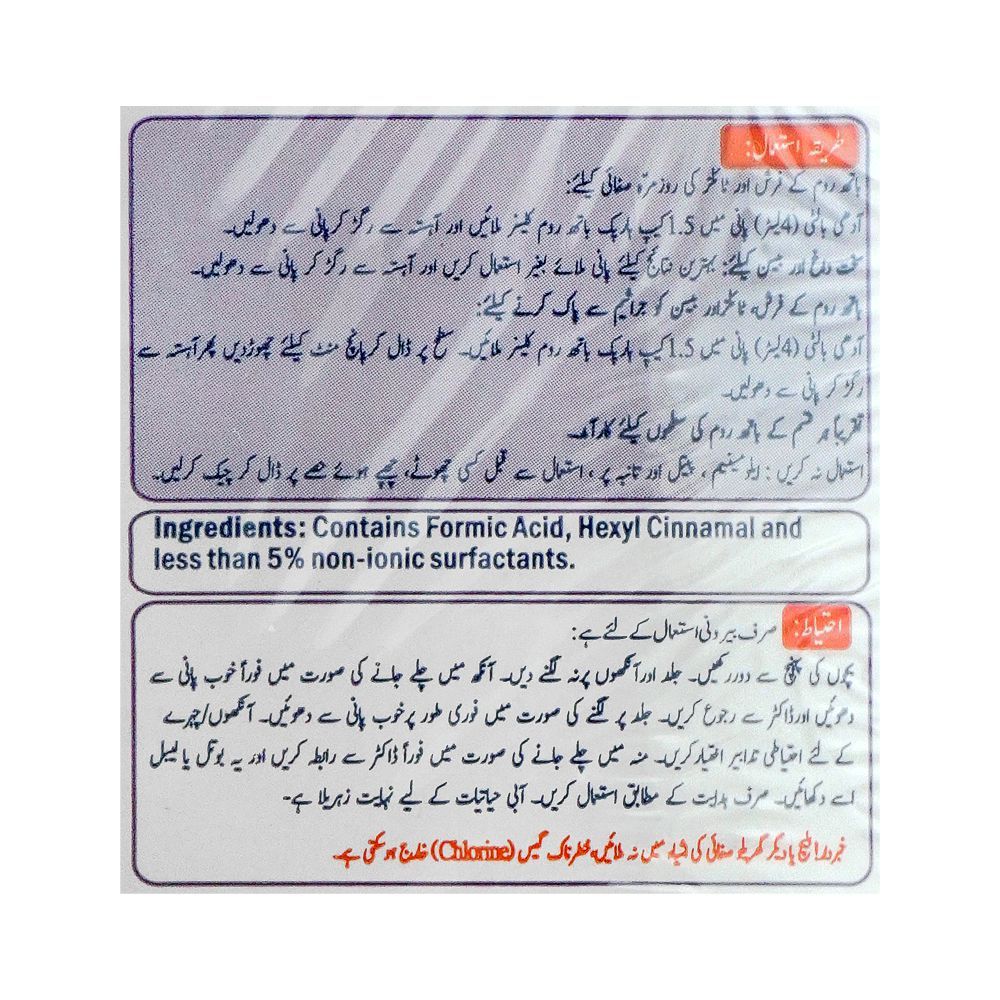 طریقہ استعمال:
باتھ روم کے فرش اور ٹائلز کی روزمرّہ صفائی کیلئے:
آدھی بالٹی (4لیٹر) پانی میں 1.5کیپ ہارپک باتھ روم کلینر ملائیں اور آہستہ سے رگڑ کر پانی سے دھولیں۔
سخت داغ اور بیسن کیلئے: بہترین نتائج کیلئے پانی ملائے بغیر استعمال کریں اور آہستہ سے رگڑ کر پانی سے دھولیں۔
باتھ روم کے فرش، ٹائلز اور بیسن کو جراثیم سے پاک کرنے کیلئے:
آدھی بالٹی (4لیٹر) پانی میں 1.5کیپ ہارپک باتھ روم کلینر ملائیں۔ سطح پر ڈال کر پانچ منٹ کیلئے چھوڑدیں پھر آہستہ سے
رگڑ کر پانی سے دھولیں۔
تقریباً ہر قسم کے باتھ روم کی سطحوں کیلئے کارآمد۔
استعمال نہ کریں: ایلومینیم، پیتل اور تانبہ پر، استعمال سے قبل کسی چھوٹے، چھپے ہوئے حصے پر ڈال کر چیک کرلیں۔
Ingredients: Contains Formic Acid, Hexyl Cinnamal and
less than 5% non-ionic surfactants.
احتیاط: صرف بیرونی استعمال کے لئے ہے:
بچوں کی پہنچ سے دور رکھیں۔ جلد اور آنکھوں پر نہ لگنے دیں۔ آنکھ میں چلے جانے کی صورت میں فوراً خوب پانی سے
دھوئیں اور ڈاکٹر سے رجوع کریں۔ جلد پر لگنے کی صورت میں فوری طور پر خوب پانی سے دھوئیں۔ آنکھوں/چہرے
کے لئے احتیاطی تدابیر اختیار کریں۔ منہ میں چلے جانے کی صورت میں فوراً ڈاکٹر سے رابطہ کریں اور یہ بوتل یا لیبل
اسے دکھائیں۔ صرف ہدایت کے مطابق استعمال کریں۔ آبی حیاتیات کے لیے نہایت زہریلا ہے-
خبردار! بلیچ یا دیگر گھریلو صفائی کی اشیاء میں نہ ملائیں، خطرناک گیس (Chlorine) خارج ہو سکتی ہے۔